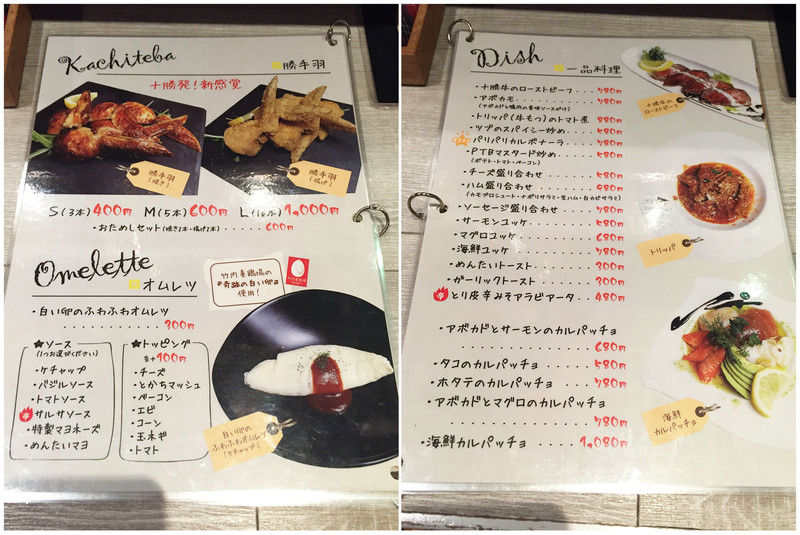 Kachiteba
勝手羽
十勝発!新感覚
勝手羽
(焼き)
勝手羽
(揚げ)
S(3本)400円 M(5本)600円 L(10本)1,000円
・おためしセット(焼き2本・揚げ2本) ...... 600円
Omelette
オムレツ
竹内養鶏場の
『奇跡の白い卵』
使用!
・白い卵のふわふわオムレツ
............ 300円
★ソース
(1つお選びください)
・ケチャップ
・バジルソース
・トマトソース
サルサソース
・特製マヨネーズ
・めんたいマヨ
★トッピング
各+100円
・チーズ
・とかちマッシュ
・ベーコン
・エビ
・コーン
・玉ネギ
・トマト
白い卵の
ふわふわオムレツ
(ケチャップ)
Dish
一品料理
・十勝牛のローストビーフ... 780円
・アボカモ........ 780円
・トリッパ(牛もつ)のトマト煮 880円
・ツブのスパイシー炒め.. 580円
パリパリカルボナーラ.. 780円
・PTBマスタード炒め... 580円
(ポテト・トマト・ベーコン)
・チーズ盛り合わせ.... 580円
・ハム盛り合わせ..... 980円
(カモプロシュート・ナポリサラミ・生ハム・白カビサラミ)
・ソーセージ盛り合わせ.. 780円
・サーモンユッケ..... 580円
・マグロユッケ...... 680円
・海鮮ユッケ....... 780円
・めんたいトースト.... 300円
・ガーリックトースト... 300円
とり皮辛みそアラビアータ.. 480円
・アボカドとサーモンのカルパッチョ
........... 680円
・タコのカルパッチョ.... 580円
・ホタテのカルパッチョ... 780円
・アボカドとマグロのカルパッチョ
........... 780円
・海鮮カルパッチョ..... 1,080円
十勝牛の
ローストビーフ
トリッパ
海鮮
カルパッチョ